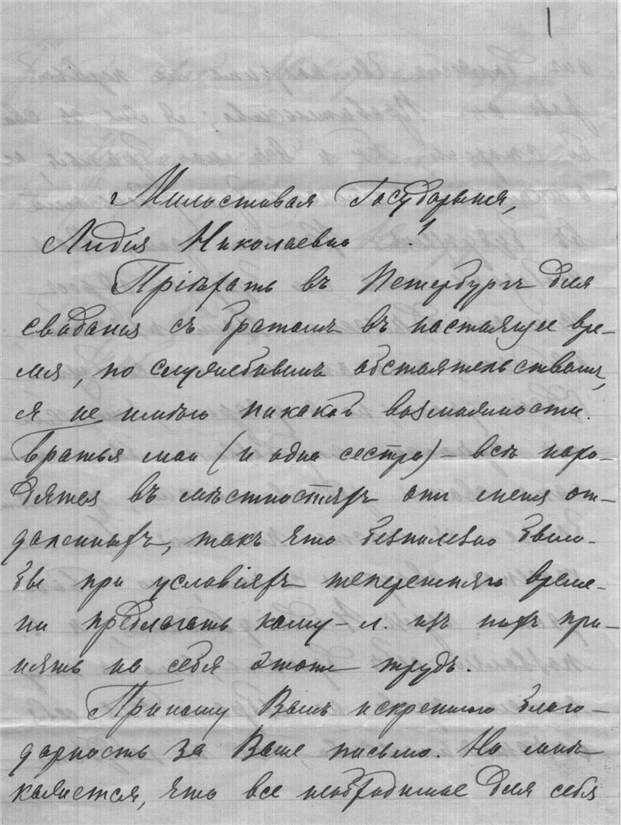 1
Милостивая Государыня,
Лидія Николаевна!
Пріѣхать въ Петербургъ для
свиданія съ братомъ въ настоящее вре-
мя, по служебнымъ обстоятельствамъ,
я не имѣю никакой возможности.
Братья мои (и одна сестра) – всѣ нахо-
дятся въ мѣстностяхъ отъ меня от-
даленныхъ, такъ что безполезно было-
бы при условіяхъ теперешняго време-
ни предлагать кому-л. изъ нихъ при-
нять на себя этотъ трудъ.
Приношу Вамъ искреннюю благо-
дарность за Ваше письмо. Но мнѣ
кажется, что все необходимое для себя